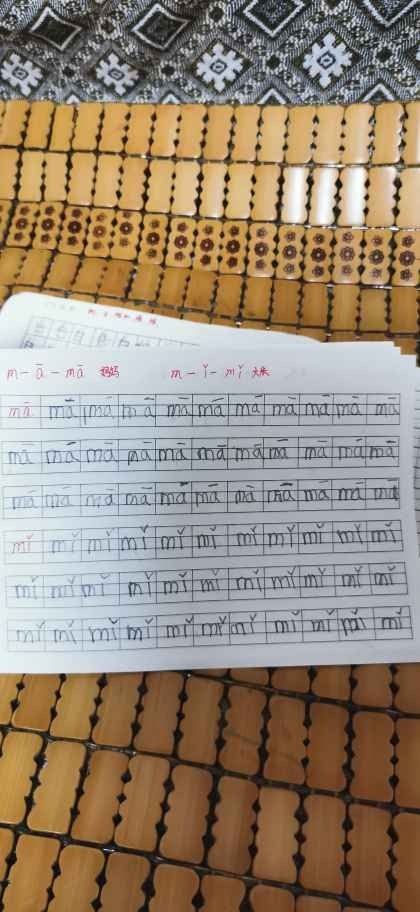 m — ā — mā 妈妈 m — ǐ — mǐ 大米
mā mā mā mā mā mā mā mā mā mā mā
mā mā mā mā mā mā mā mā mā mā mā
mā mā mā mā mā mā mā mā mā mā mā
mǐ mǐ mǐ mǐ mǐ mǐ mǐ mǐ mǐ mǐ mǐ
mǐ mǐ mǐ mǐ mǐ mǐ mǐ mǐ mǐ mǐ mǐ
mǐ mǐ mǐ mǐ mǐ mǐ mǐ mǐ mǐ mǐ mǐ